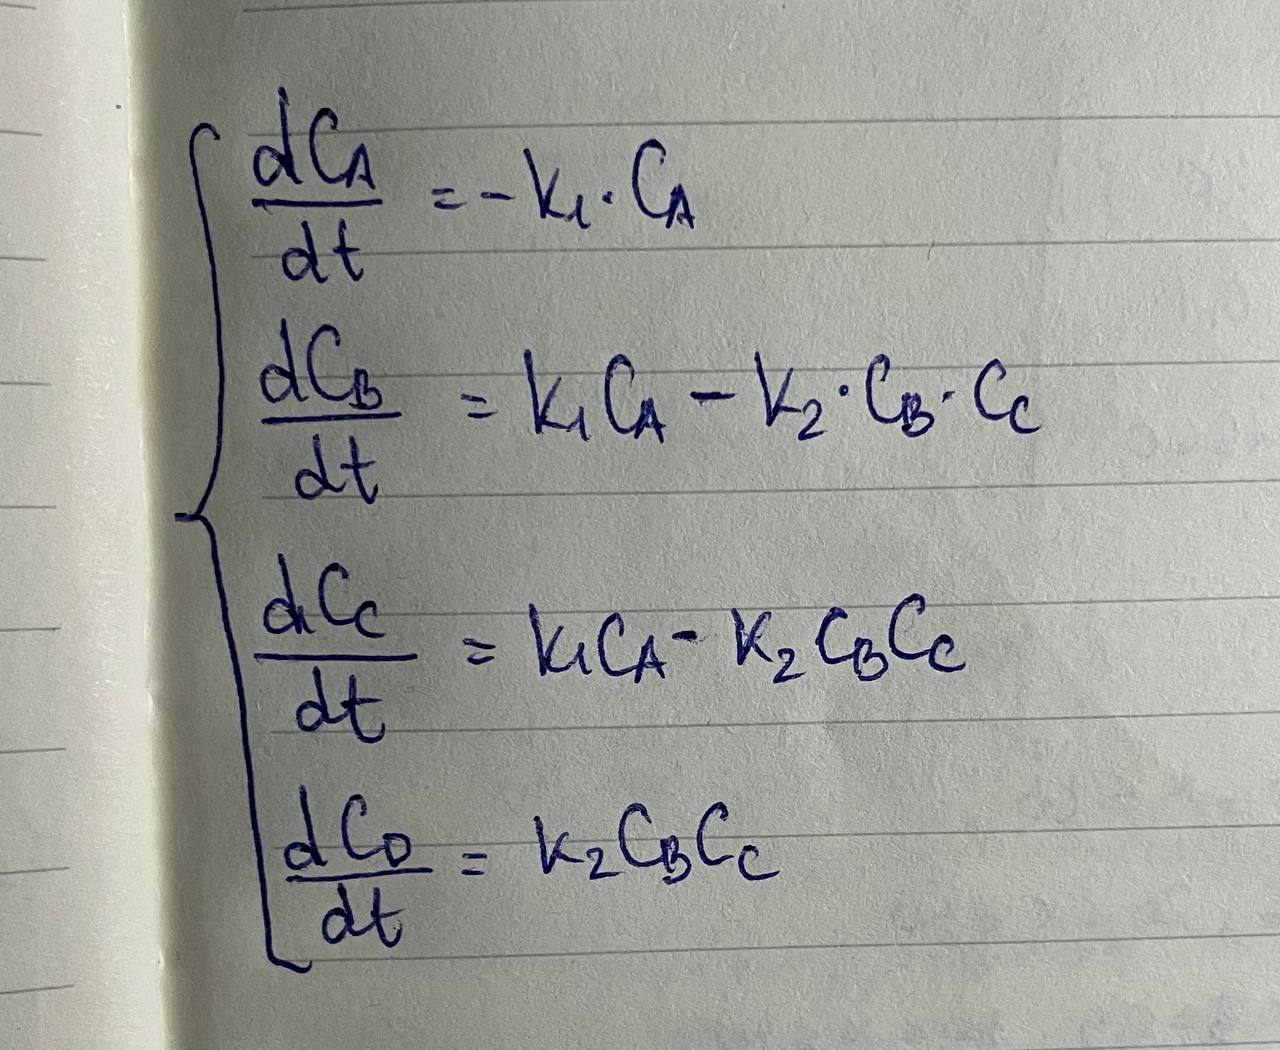 dCA/dt = -k1·CA
dCB/dt = k1CA - k2·CB·CC
dCC/dt = k1CA - k2CBCC
dCD/dt = k2CBCC